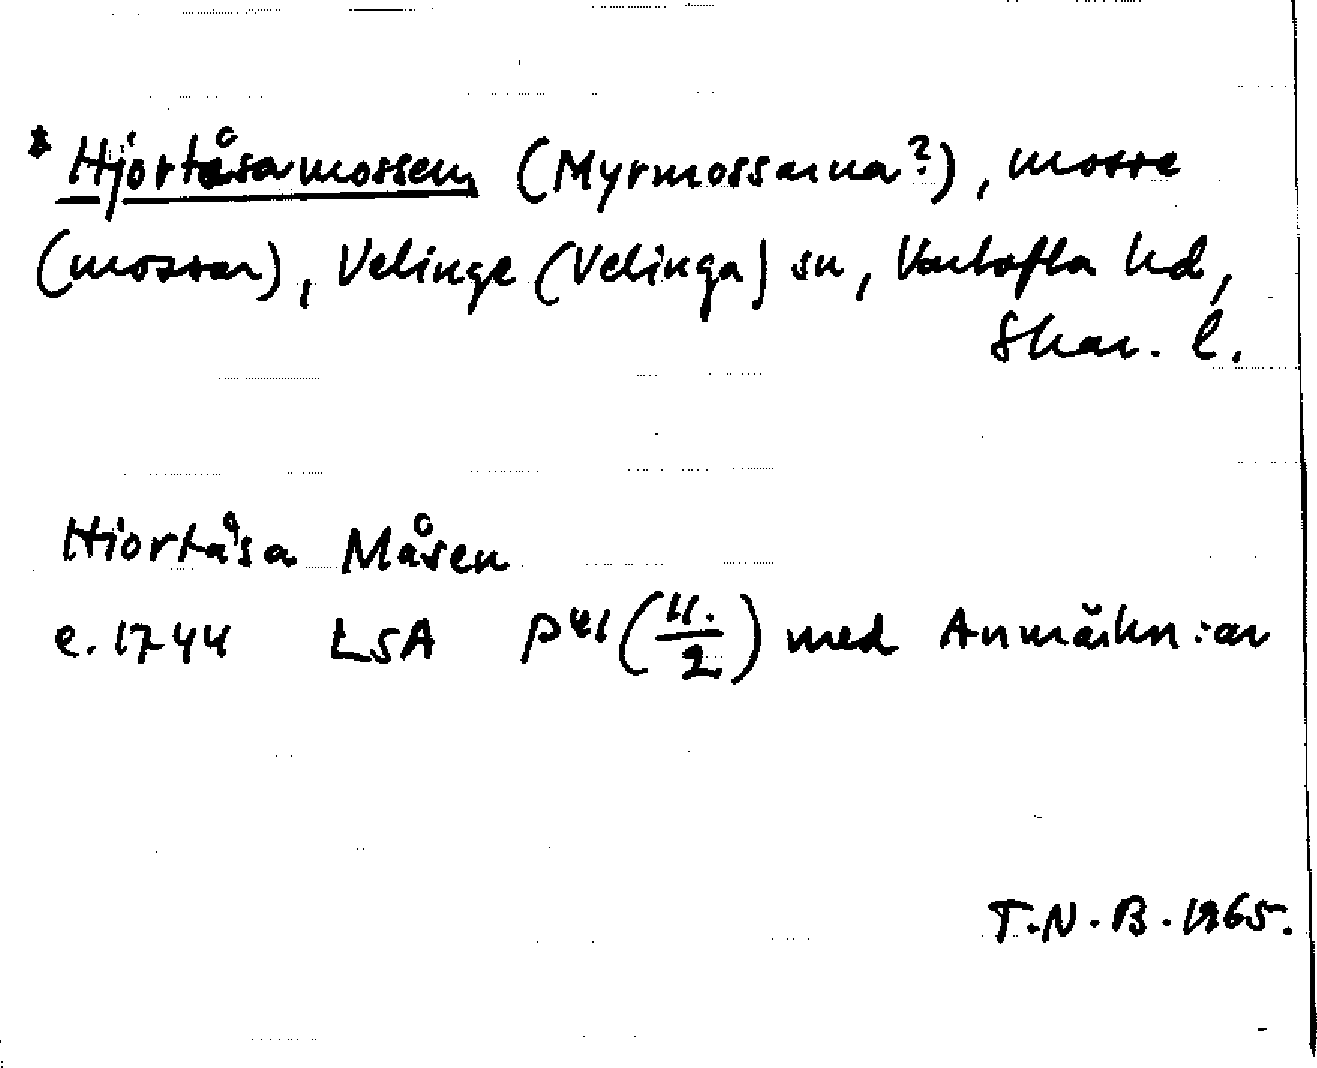 * Hjortåsamossen, (Myrmossarna?), mosse
(mossar), Velinge (Velinga) sn, Vartofta hd,
Skar. l.
Hiortåsa Måsen
e. 1744 LSA P41 (11./2) med Anmärkn:ar
T.N.B. 1965.